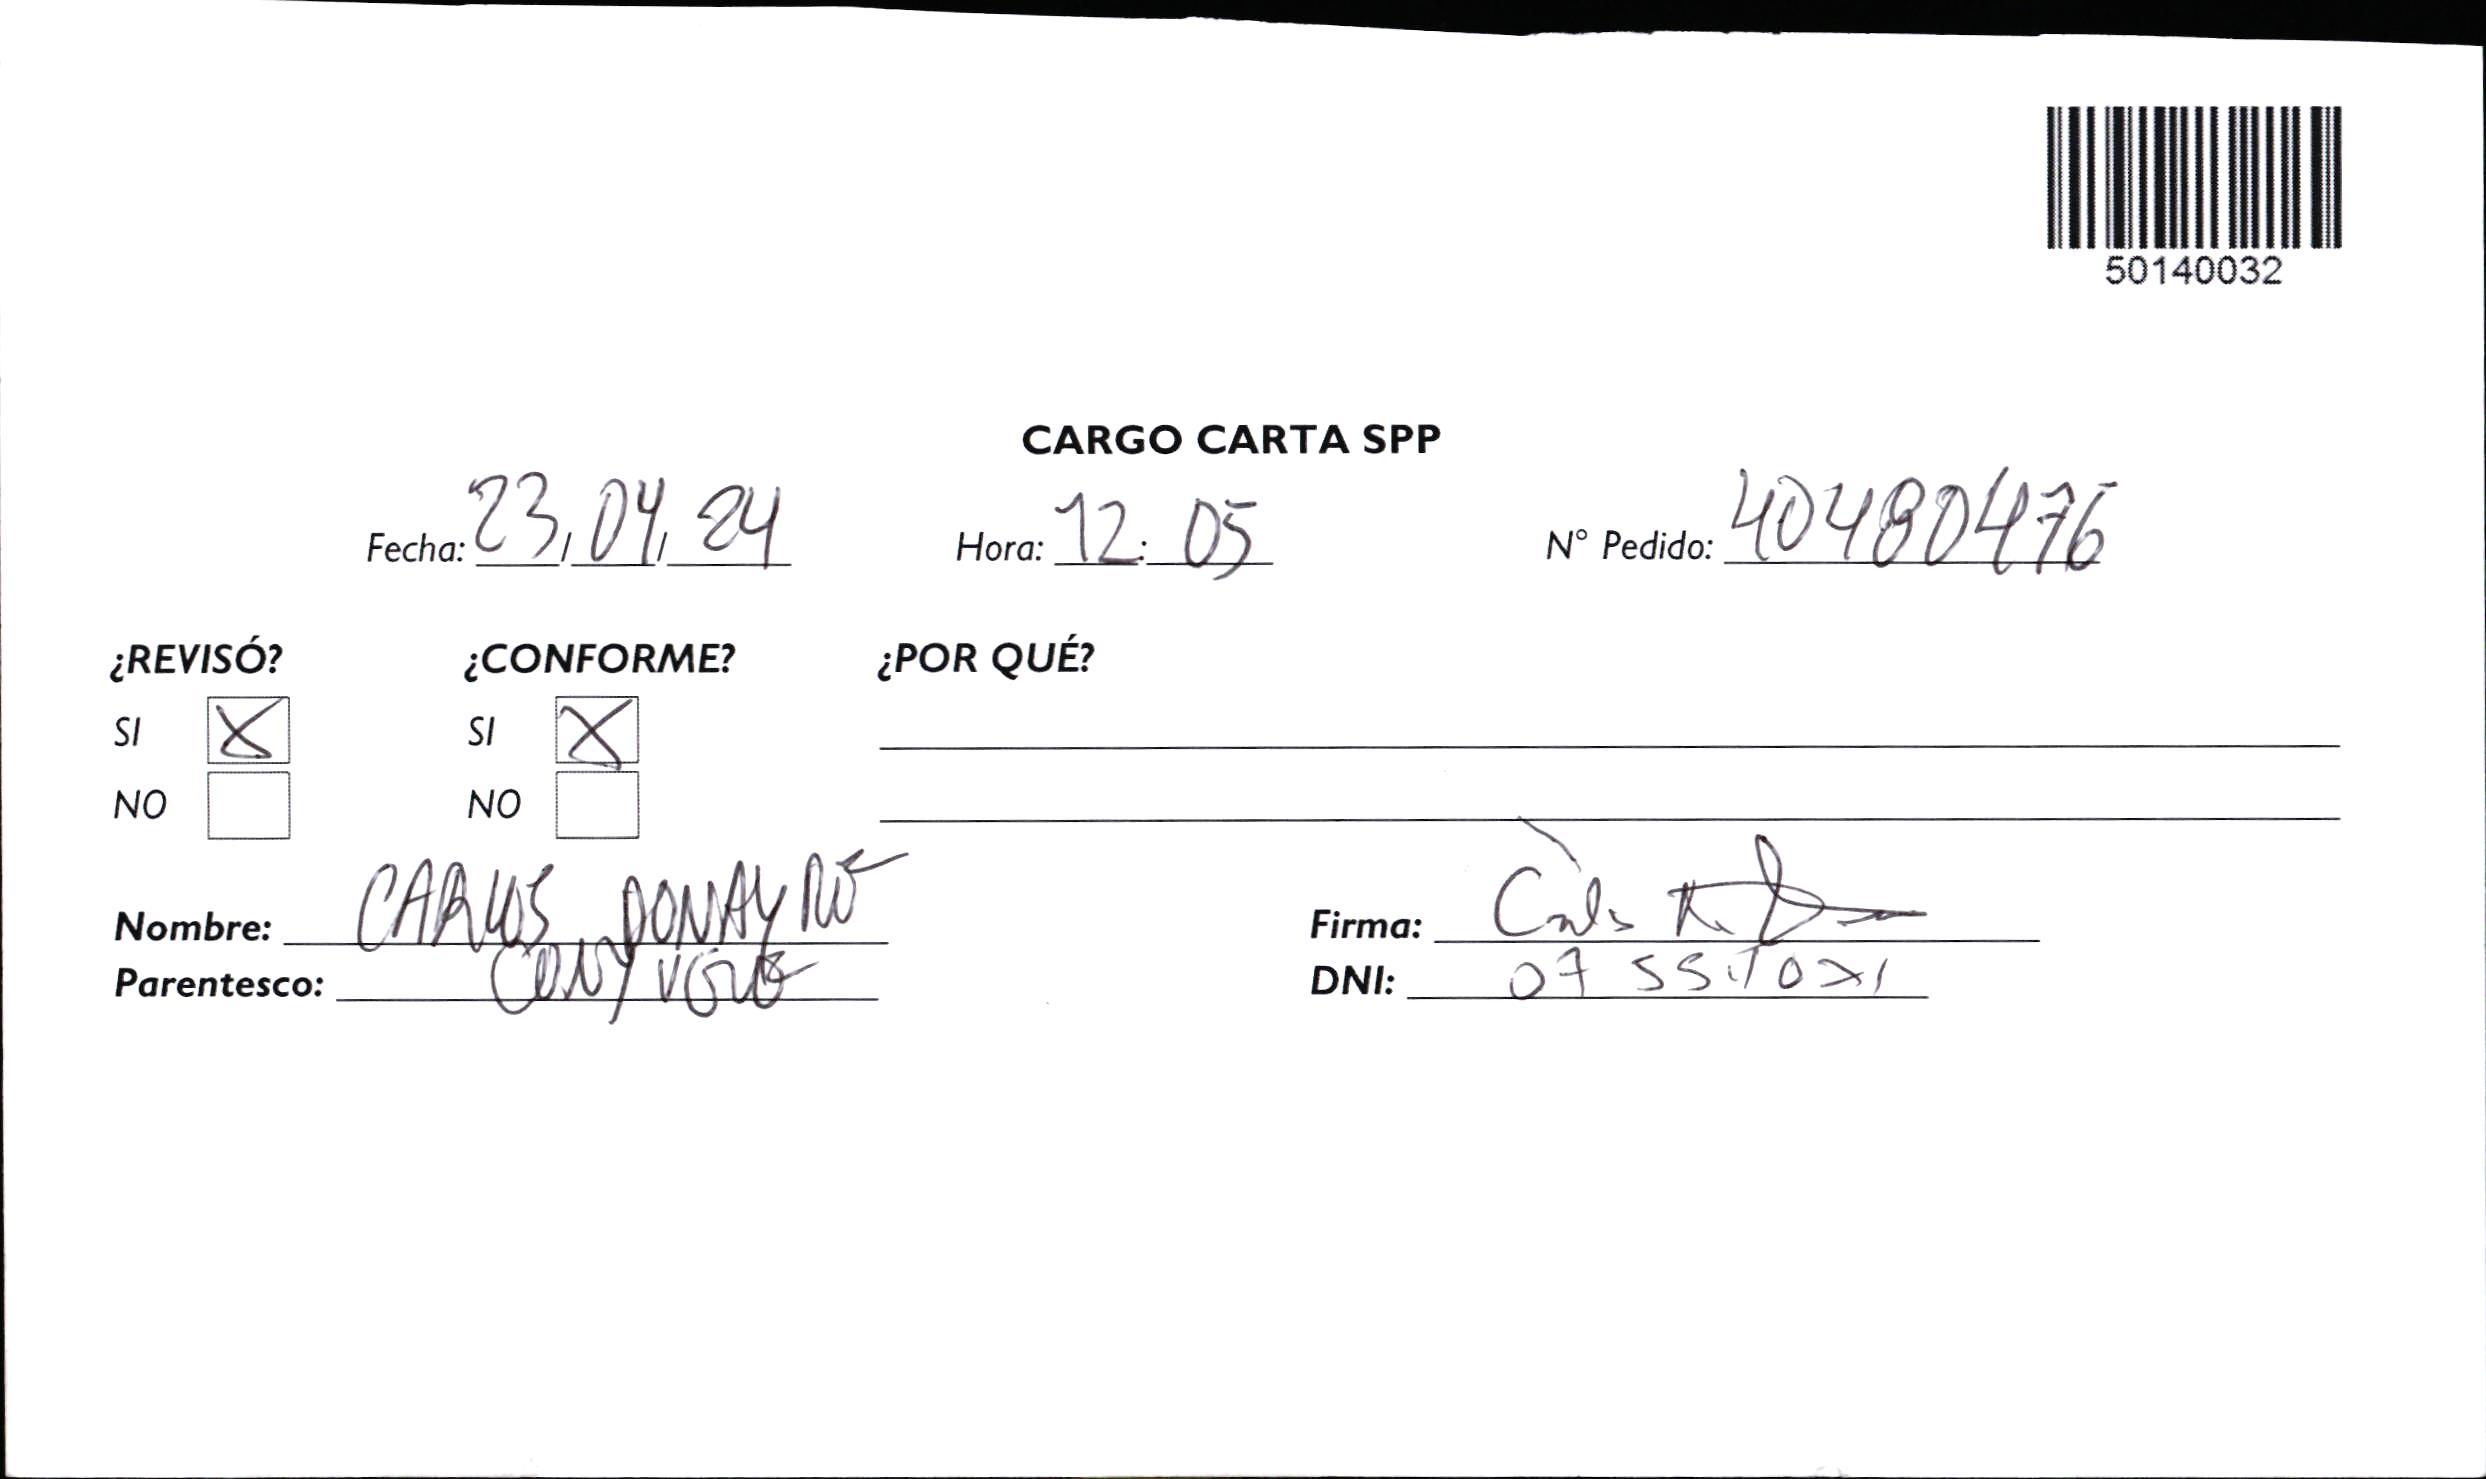 50140032
CARGO CARTA SPP
Fecha: 23/04/24 Hora: 12:05 N° Pedido: 40480476
¿REVISÓ? ¿CONFORME? ¿POR QUÉ?
SI X SI X
NO NO
Nombre: CARLOS DONAYRE Firma:
Parentesco: CONYUGUE DNI: